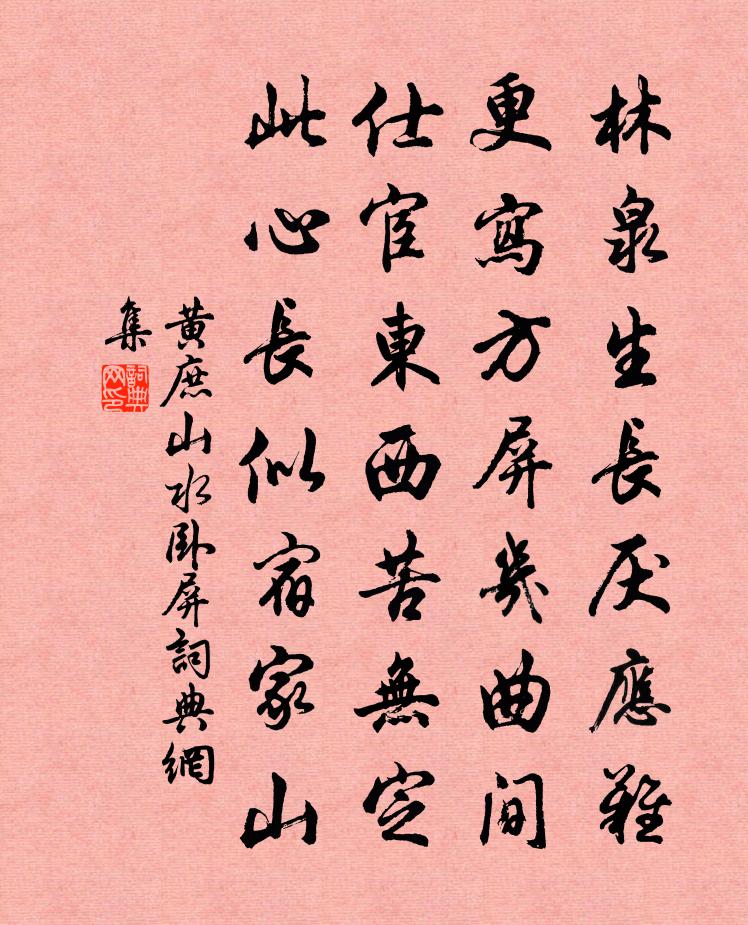 林泉生長厌應難
更寫方屏幾曲间
仕宦東西苦無定
此心長似宿家山
黄庶山水卧屏詞典網
集
詞典網印